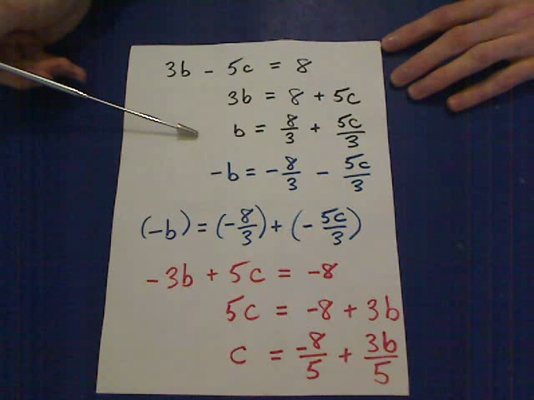 3b - 5c = 8
3b = 8 + 5c
b = 8/3 + 5c/3
-b = -8/3 - 5c/3
(-b) = (-8/3) + (-5c/3)
-3b + 5c = -8
5c = -8 + 3b
c = -8/5 + 3b/5